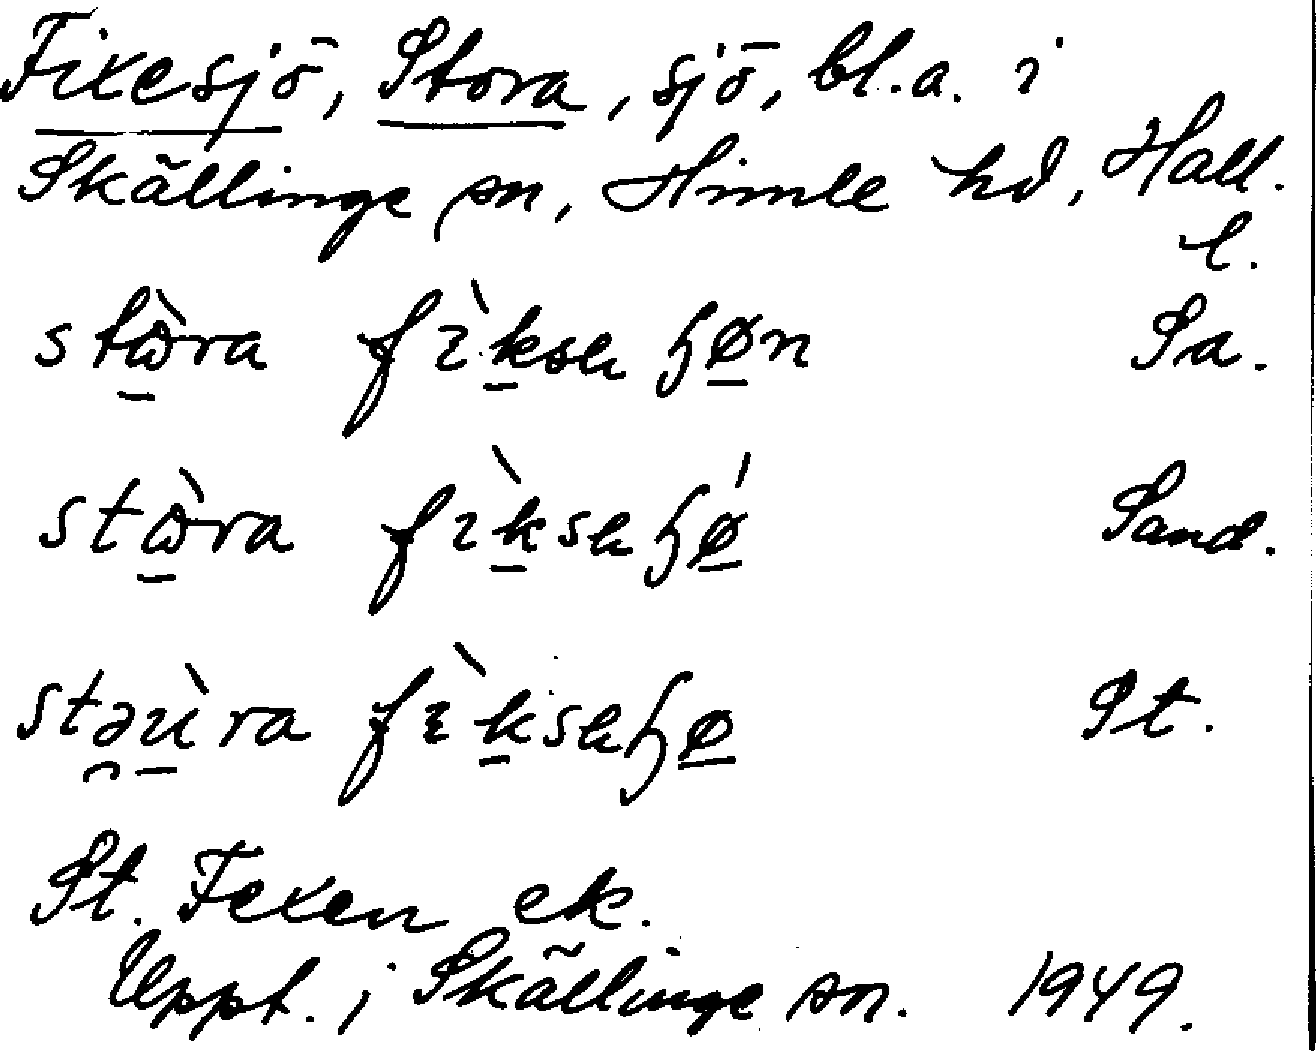 Fixesjö, Stora, sjö, bl.a. i
Skällinge sn, Himle hd, Hall.
l.
stɷ̀ra fìksɐ ɧøn Sa.
stɷ̀ra fìksɐɧǿ Sand.
stəùra fìksɐɧø St.
St. Fexen ek.
Uppt. i Skällinge sn. 1949.